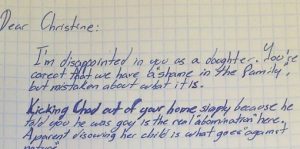 Dear Christine:
I'm disappointed in you as a daughter. You're
corect that we have a "shame in the family",
but mistaken about what it is.
Kicking Chad out of your home simply because he
told you he was gay is the real "abomination" here.
A parent disowning her child is what goes "against
nature".